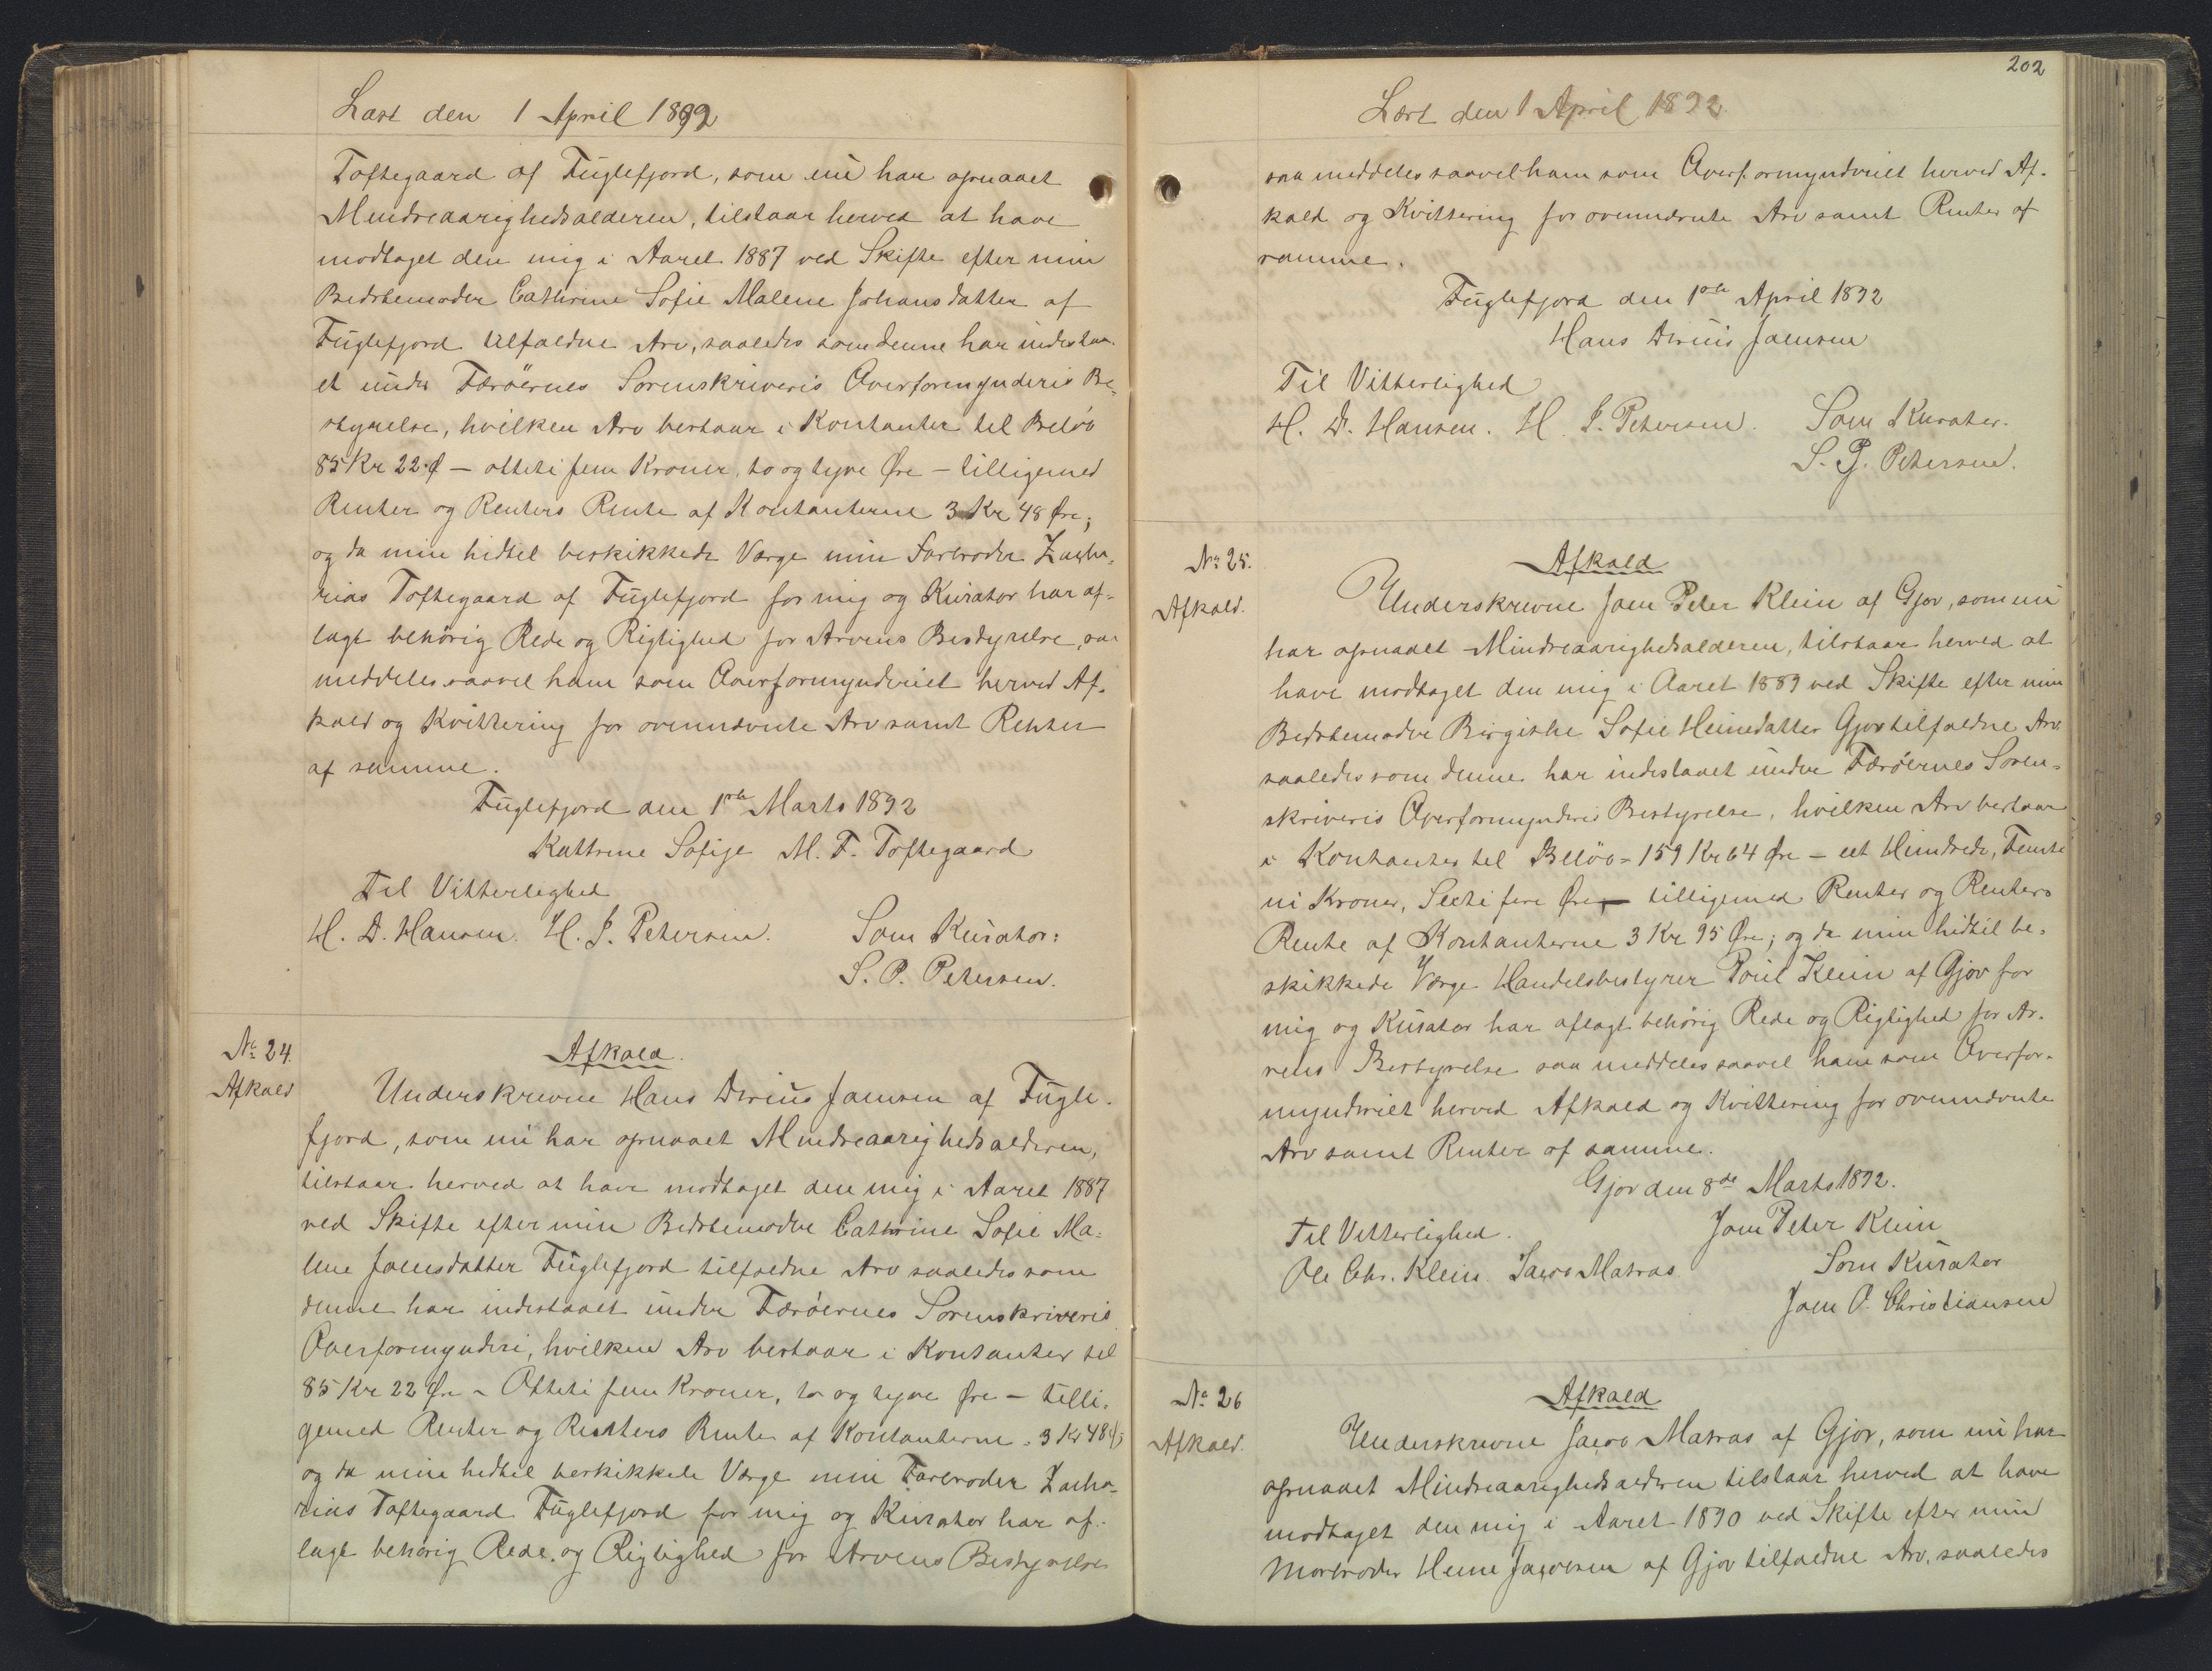 Læst den 1 April 1892
Toftegaard af Fuglefjord, som nu har opnaaet
Mindreaarighedsalderen, tilstaar herved at have
modtaget den mig i Aaret 1887 ved Skifte efter min
Bedstemoder Cathrine Sofie Malene Johansdatter af
Fuglefjord tilfaldne Arv, saaledes som denne har indestaa-
et under Færöernes Sorenskriveris Overformynderis Be-
styrelse, hvilken Arv bestaar i Kontanter til Belöb
85 Kr 22 Ø – otteti fem Kroner, to og tyve Øre – tilligemed
Renter og Renters Rente af Kontanterne 3 Kr 48 Øre;
og da min hidtil beskikkede Værge min Farbroder Zacha-
rias Toftegaard af Fuglefjord for mig og Kurator har af-
lagt behörig Rede og Rigtighed for Arvens Bestyrelse, saa
meddeles saavel ham som Overformynderiet herved Af-
kald og Kvittering for ovennævnte Arv samt Renter
af samme.
Fuglefjord den 1ste Marts 1892
Kathrine Sofije M. F. Toftegaard
Til Vitterlighed
H. D. Hansen. H. J. Petersen. Som Kurator:
S. P. Petersen.
No 24. Afkald.
Afkald Underskrevne Hans Dirius Joensen af Fugle-
fjord, som nu har opnaaet Mindreaarighedsalderen,
tilstaar herved at have modtaget den mig i Aaret 1887
ved Skifte efter min Bedstemoder Cathrine Sofie Ma-
lene Joensdatter Fuglefjord tilfaldne Arv saaledes som
denne har indestaaet under Færöernes Sorenskriveris
Overformynderi, hvilken Arv bestaar i Kontanter til
85 Kr 22 Øre – Otteti fem Kroner, to og tyve Øre – tilli-
gemed Renter og Renters Rente af Kontanterne = 3 Kr 48 Ø;
og da min hidtil beskikkede Værge min Farbroder Zacha-
rias Toftegaard Fuglefjord for mig og Kurator har af-
lagt behörig Rede og Rigtighed for Arvens Bestyrelse
202
Læst den 1 April 1892.
saa meddeles saavel ham som Overformynderiet herved Af-
kald og Kvittering for ovennævnte Arv samt Renter af
samme.
Fuglefjord den 1ste April 1892
Hans Dirius Joensen
Til Vitterlighed
H. D. Hansen. H. J. Petersen. Som Kurator.
S. P. Petersen.
No 25. Afkald
Afkald. Underskrevne Joen Peter Klein af Gjov, som nu
har opnaaet Mindreaarighedsalderen, tilstaar herved at
have modtaget den mig i Aaret 1889 ved Skifte efter min
Bedstemoder Birgithe Sofie Heinedatter Gjov tilfaldne Arv
saaledes som denne har indestaaet under Færöernes Soren-
skriveris Overformynderis Bestyrelse, hvilken Arv bestaar
i Kontanter til Belöb = 159 Kr 64 Øre – eet Hundrede, Femti
ni Kroner, Sexti fire Øre, – tilligemed Renter og Renters
Rente af Kontanterne 3 Kr 95 Øre; og da min hidtil be-
skikkede Værge Handelsbestyrer Poul Klein af Gjov for
mig og Kurator har aflagt behörig Rede og Rigtighed for Ar-
vens Bestyrelse saa meddeles saavel ham som Overfor-
mynderiet herved Afkald og Kvittering for ovennævnte
Arv samt Renter af samme.
Gjov den 8de Marts 1892.
Til Vitterlighed. Joen Peter Klein
Ole Chr. Klein. Jacob Matras Som Kurator
Joen P. Christiansen
No 26 Afkald
Afkald. Underskrevne Jacob Matras af Gjov, som nu har
opnaaet Mindreaarighedsalderen tilstaar herved at have
modtaget den mig i Aaret 1890 ved Skifte efter min
Morbroder Heine Jacobsen af Gjov tilfaldne Arv, saaledes